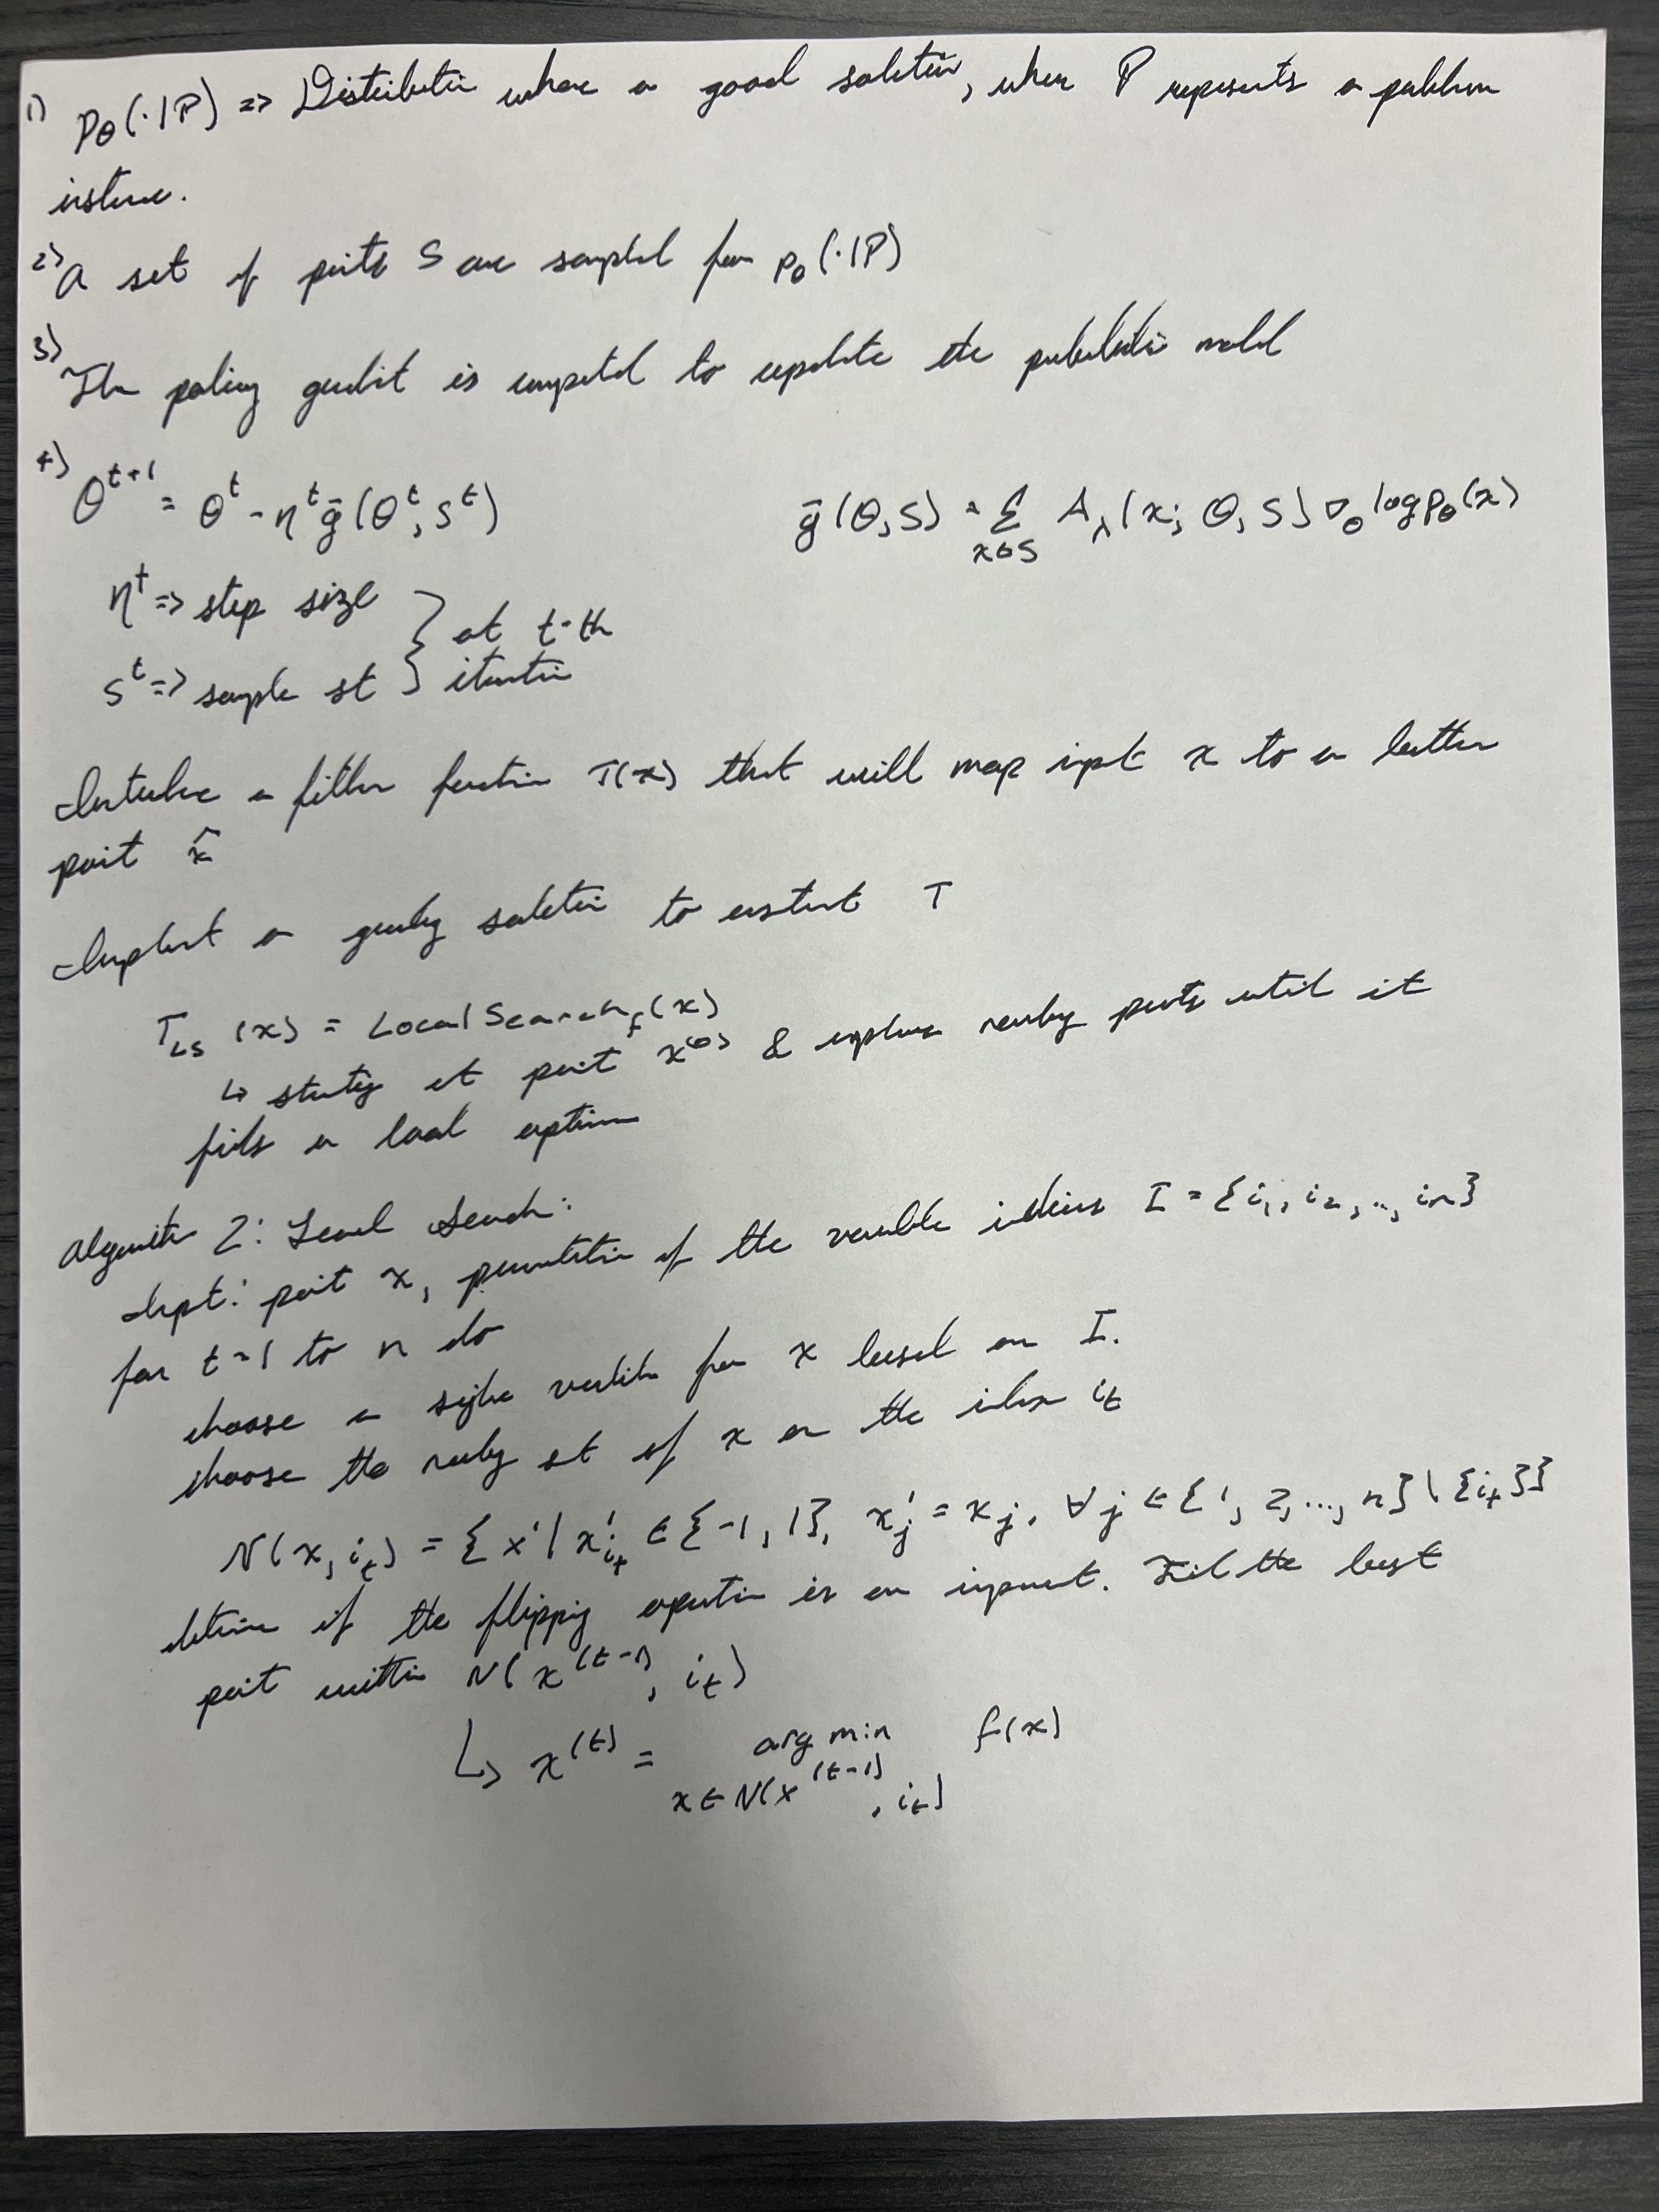 1) Pθ(·|P) => Distribution where a good solution, where P represents a problem
instance.
2) A set of points S are sampled from pθ(·|P)
3) The policy gradient is computed to update the probabilistic model
4) θ^{t+1} = θ^t - η^t ḡ(θ^t, S^t) ḡ(θ, S) = Σ_{x∈S} A_λ(x; θ, S) ∇_θ log pθ(x)
η^t => step size } at t-th
S^t => sample set } iteration
Introduce a filter function T(x) that will map input x to a better
point x̂
Implement a greedy solution to construct T
T_{LS}(x) = LocalSearch_f(x)
↳ starting at point x^{(0)} & explores nearby points until it
finds a local optimum
Algorithm 2: Local Search:
Input: point x, permutation of the variable indices I = {i_1, i_2, .., i_n}
for t=1 to n do
choose a single variable from x based on I.
choose the nearby set of x on the index i_t
N(x, i_t) = {x' | x'_{i_t} ∈ {-1, 1}, x'_j = x_j, ∀j ∈ {1, 2, ..., n} \ {i_t}}
determine if the flipping operation is an improvement. Find the best
point within N(x^{(t-1)}, i_t)
↳ x^{(t)} = arg min_{x∈N(x^{(t-1)}, i_t)} f(x)